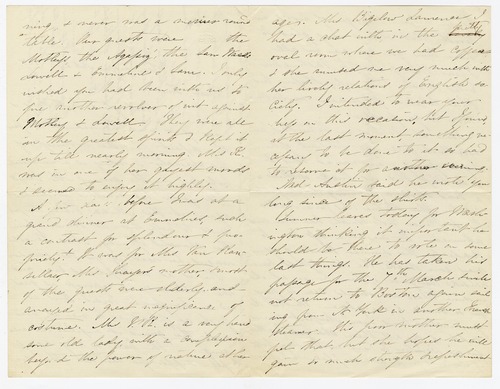 ning, & never was a merrier round
table. Our guests were the
Motleys the Agassiz, the Sam Wards
Lowell & ourselves & Sam. Only
wished you had been with us to
fire another revolver of wit against
Motley & Lowell. They were all
in the greatest spirits & kept it
up till nearly morning. Mrs
was in one of her gayest moods
& seemed to enjoy it highly.
A before I was at a
grand dinner at such
a contrast for splendour &
It was for Mrs Van Ran
sellaer Mrs Thayers mother, most
of the guests were elderly, and
arrayed in great magnificence of
costume. Mrs V R. is a very hand
some old lady, with a complexion
beyond the power of nature at her
age. Mrs Bigelow Lawrence. I
had a chat with in the pretty
oval room where we had coffee
& she amused me very much with
her lively relations of English so
ciety. I intended to wear your
on this occasion, but found
at the last moment something ne
cessary to be done to it so had
to reserve it for another evening.
Mrs said he wrote you
long since of the
Sumner leaves today for Wash
ington thinking it important he
should be there to vote on some
last things. He has taken his
passage for the 7th March & will
not return to Boston again sail
ing from N. York in another French
steamer. His poor mother must
feel that, but she hopes he will
gain so much strength